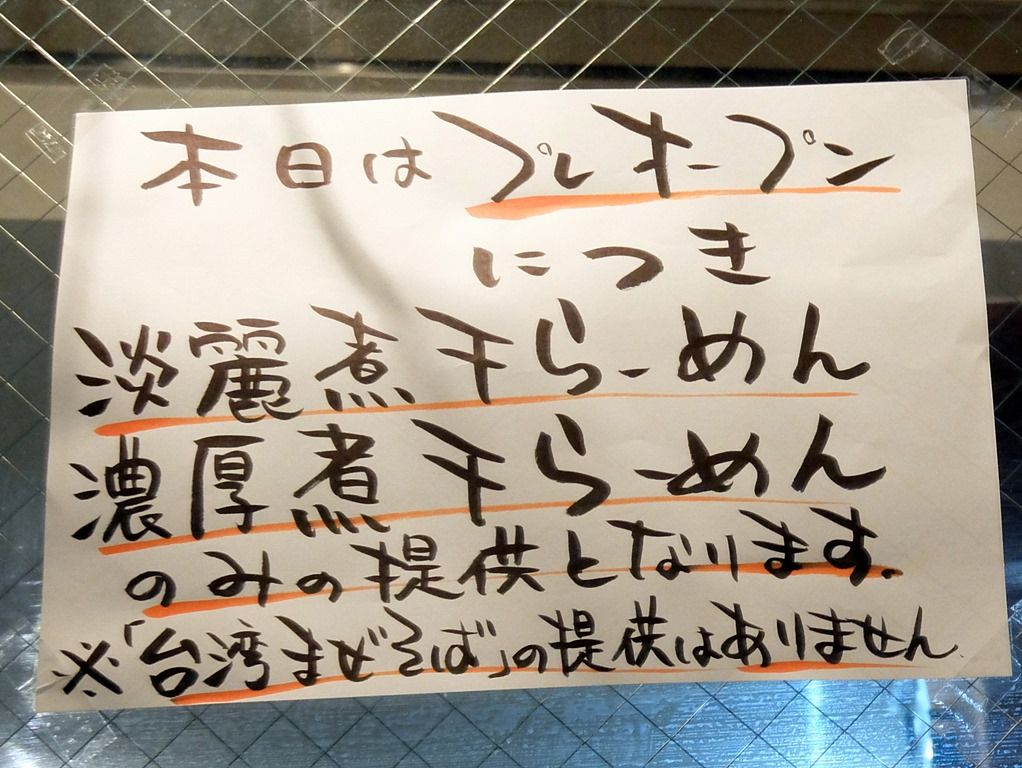 本日はプレオープン
につき
淡麗煮干らーめん
濃厚煮干らーめん
のみの提供となります。
※「台湾まぜそば」の提供はありません.